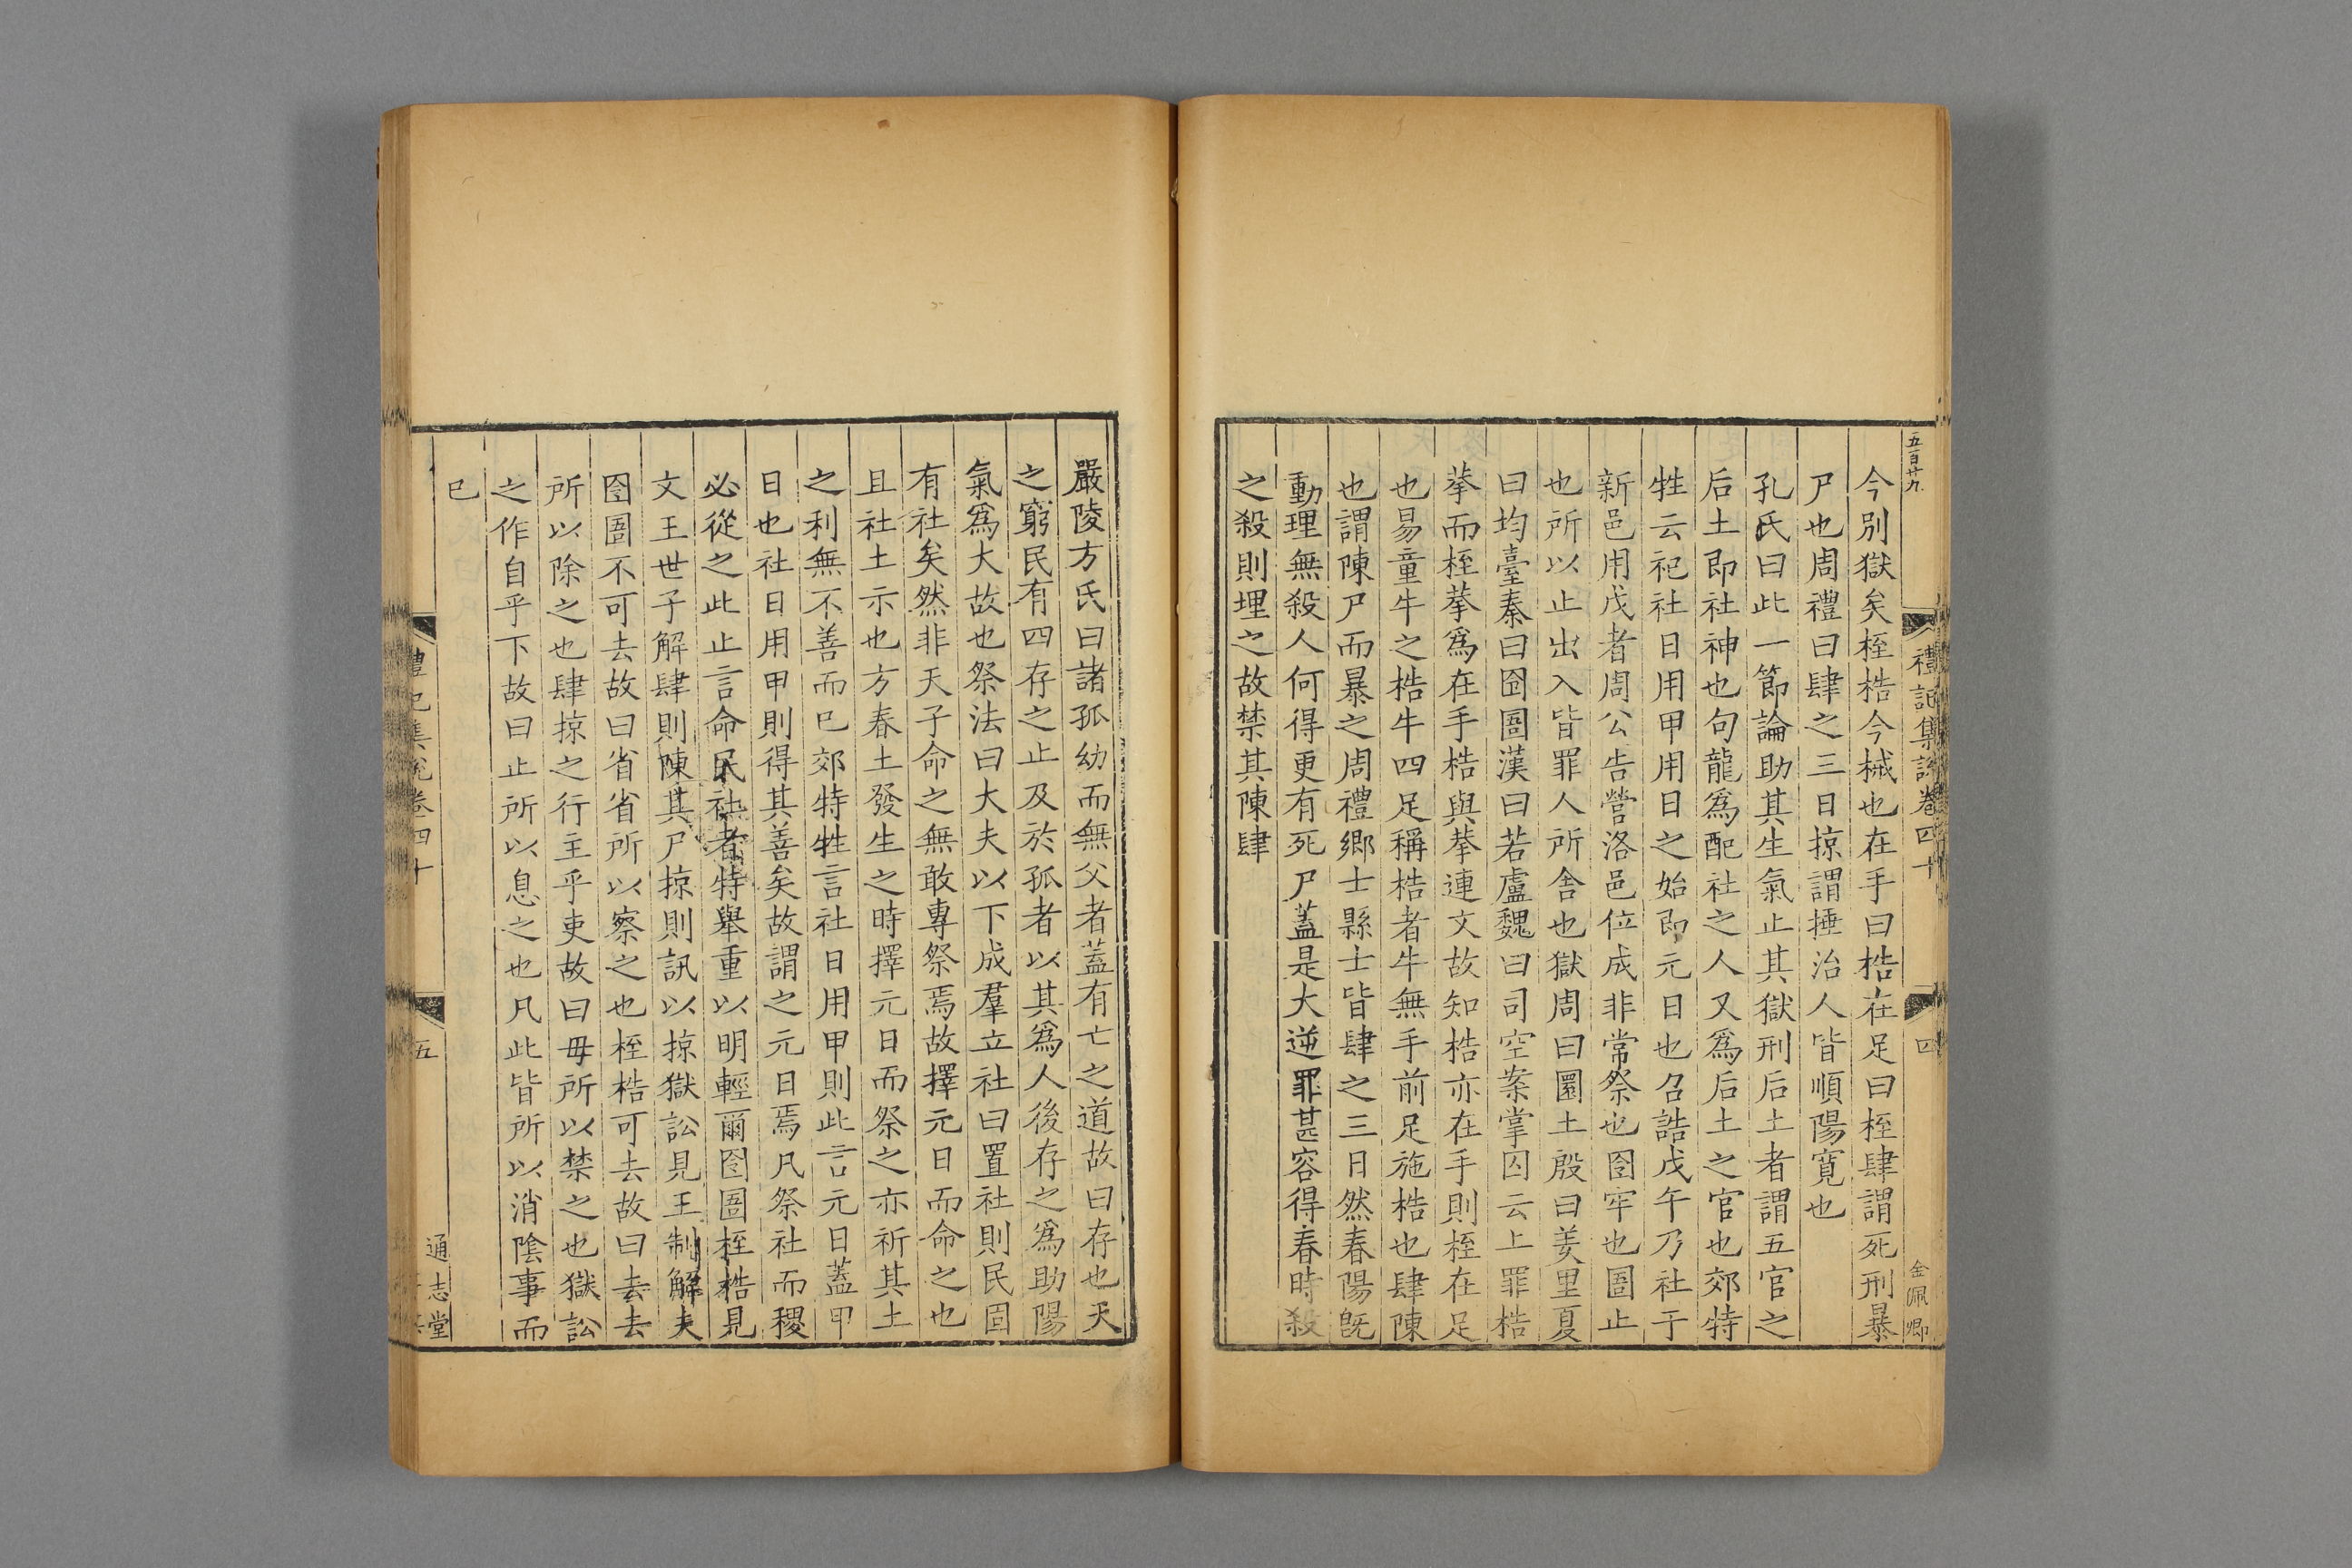 五百廿九
禮記集說卷四十
四
金佩卿
今別獄矣桎梏今械也在手曰梏在足曰桎肆謂死刑暴
尸也周禮曰肆之三日掠謂捶治人皆順陽寬也
孔氏曰此一節論助其生氣止其獄刑后土者謂五官之
后土即社神也句龍爲配社之人又爲后土之官也郊特
牲云祀社日用甲用日之始即元日也召誥戊午乃社于
新邑用戊者周公告營洛邑位成非常祭也囹牢也圄止
也所以止出入皆罪人所舎也獄周曰圜土殷曰羑里夏
曰均臺秦曰囹圄漢曰若盧魏曰司空案掌囚云上罪梏
拲而桎拲爲在手梏與拲連文故知梏亦在手則桎在足
也易童牛之梏牛四足稱梏者牛無手前足施梏也肆陳
也謂陳尸而暴之周禮鄉士縣士皆肆之三日然春陽旣
動理無殺人何得更有死尸蓋是大逆罪甚容得春時殺
之殺則埋之故禁其陳肆
嚴陵方氏曰諸孤幼而無父者蓋有亡之道故曰存也天
之窮民有四存之止及於孤者以其爲人後存之爲助陽
氣爲大故也祭法曰大夫以下成羣立社曰置社則民固
有社矣然非天子命之無敢專祭焉故擇元日而命之也
且社土示也方春土發生之時擇元日而祭之亦祈其土
之利無不善而已郊特牲言社日用甲則此言元日蓋甲
日也社日用甲則得其善矣故謂之元日焉凡祭社而稷
必從之此止言命民社者特舉重以明輕爾囹圄桎梏見
文王世子解肆則陳其尸掠則訊以掠獄訟見王制解夫
囹圄不可去故曰省省所以察之也桎梏可去故曰去去
所以除之也肆掠之行主乎吏故曰毋所以禁之也獄訟
之作自乎下故曰止所以息之也凡此皆所以消陰事而
已
禮記集說卷四十
五
通志堂